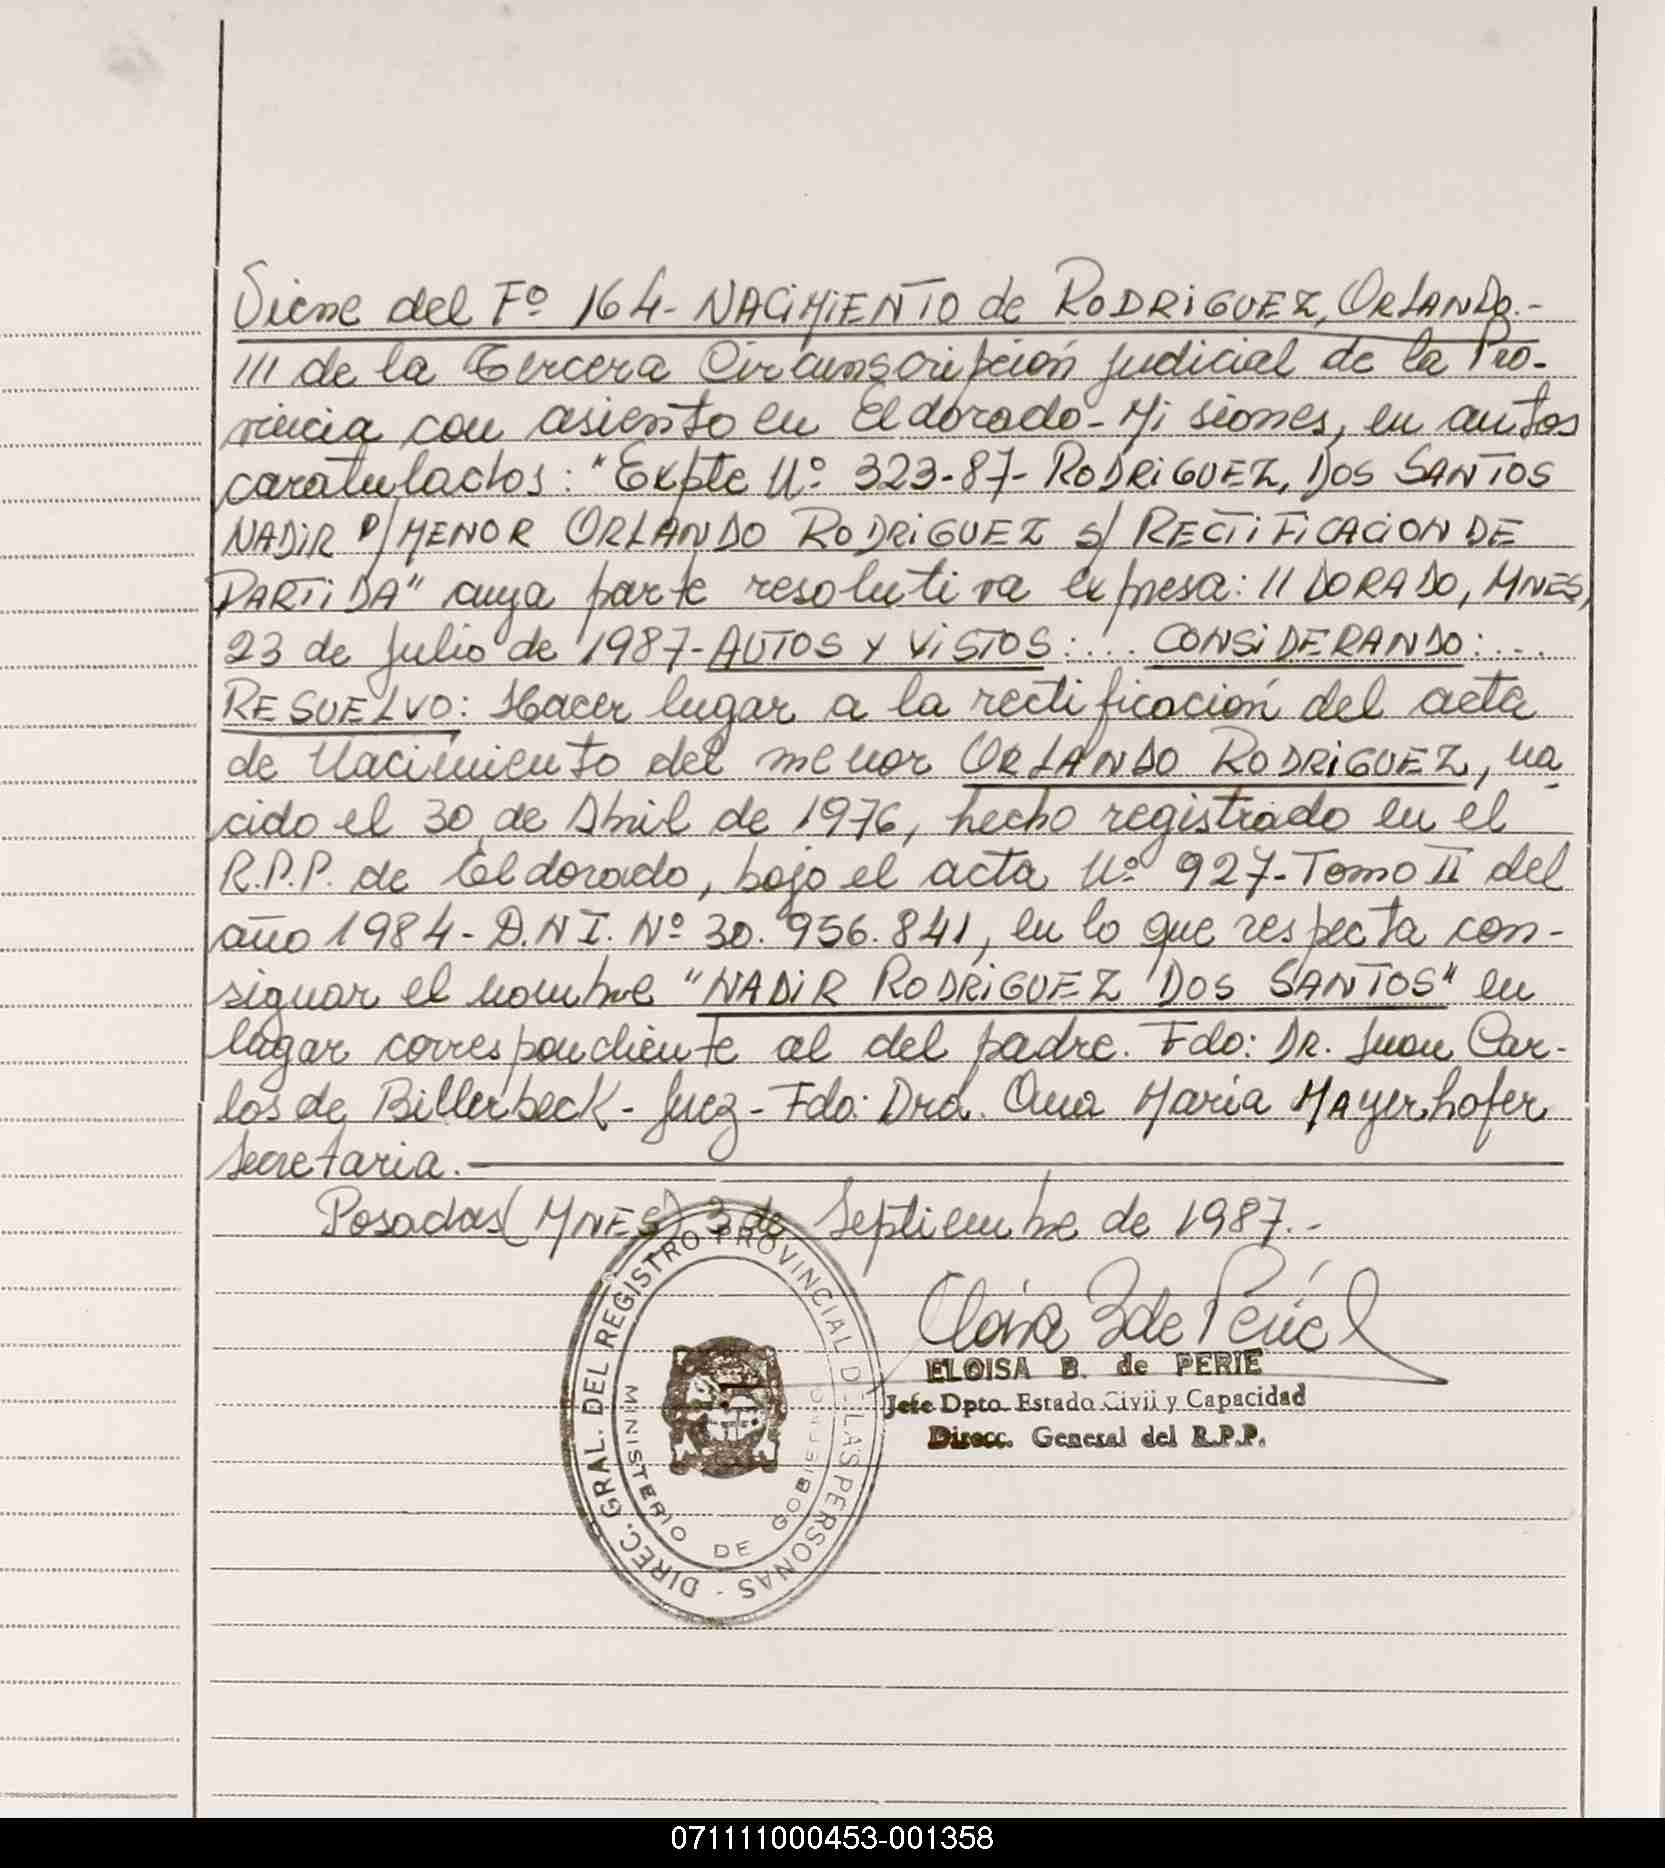 Viene del Fº 164- NACIMIENTO de RODRIGUEZ, ORLANDO.-
III de la Tercera Circunscripción Judicial de la Pro-
vincia con asiento en Eldorado- Misiones, en autos
caratulados: "Expte Nº 323-87- RODRIGUEZ, DOS SANTOS
NADIR P/MENOR ORLANDO RODRIGUEZ S/ RECTIFICACION DE
PARTIDA" cuya parte resolutiva expresa: "DORADO, MNES,
23 de Julio de 1987- AUTOS Y VISTOS:... CONSIDERANDO:....
RESUELVO: Hacer lugar a la rectificación del acta
de Nacimiento del menor ORLANDO RODRIGUEZ, na
cido el 30 de Abril de 1976, hecho registrado en el
R.P.P. de Eldorado, bajo el acta Nº 927- Tomo II del
año 1984- D.N.I. Nº 30.956.841, en lo que respecta con-
signar el nombre "NADIR RODRIGUEZ DOS SANTOS" en
lugar correspondiente al del padre. Fdo: DR. Juan Car-
los de Billerbeck- Juez- Fdo: Dra. Ana María MAyerhofer
Secretaria.
Posadas (MNES) 3 de Septiembre de 1987.-
ELOISA B. de PERIE
Jefe Dpto. Estado Civil y Capacidad
Direcc. General del R.P.P.
DIREC. GRAL. DEL REGISTRO PROVINCIAL DE LAS PERSONAS -
MINISTERIO DE GOBIERNO
071111000453-001358